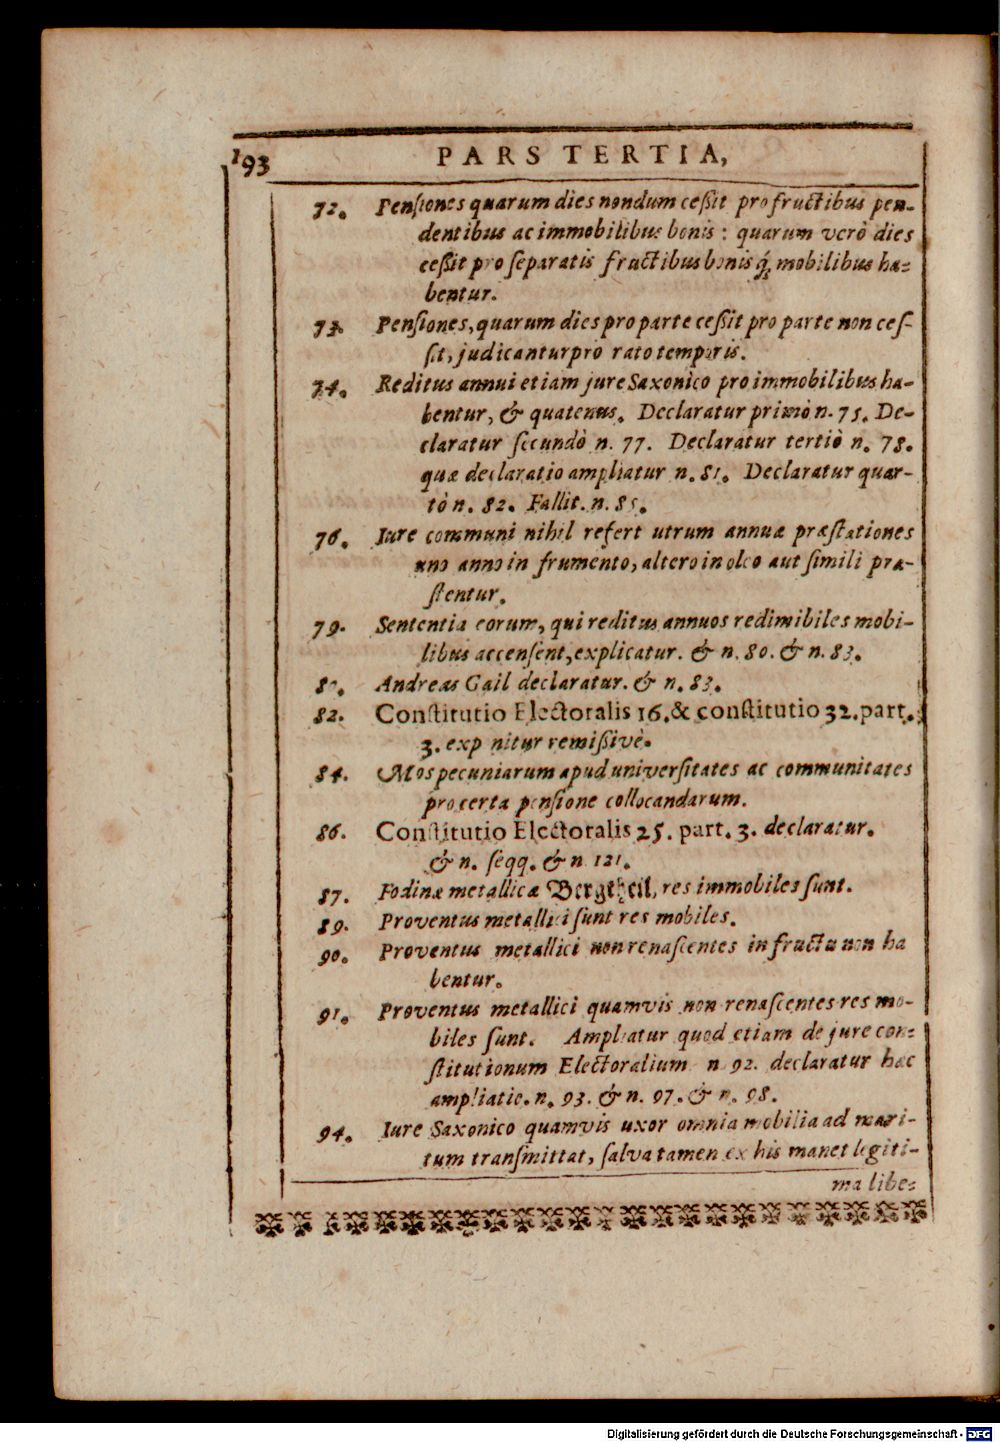 193
PARS TERTIA,
72. Penſiones quarum dies nondum ceßit pro fructibus pen-
dentibus ac immobilibus bonis : quarum verò dies
ceßit pro ſeparatis fructibus bonisq́; mobilibus ha-
bentur.
73. Penſiones, quarum dies pro parte ceßit pro parte non ceſ-
ſit, judicantur pro rato temporis.
74. Reditus annui etiam jure Saxonico pro immobilibus ha-
bentur, & quatenus. Declaratur primò n. 75. De-
claratur ſecundò n. 77. Declaratur tertiò n. 78.
quæ declaratio ampliatur n. 81. Declaratur quar-
tò n. 82. Fallit. n. 85.
76. Iure communi nihil refert utrum annuæ præſtationes
uno anno in frumento, altero in oleo aut ſimili præ-
ſtentur.
79. Sententia eorum, qui reditus annuos redimibiles mobi-
libus accenſent, explicatur. & n. 80. & n. 83.
80. Andreas Gail declaratur. & n. 83.
82. Conſtitutio Electoralis 16. & conſtitutio 32. part.
3. exp nitur remißivè.
84. Mos pecuniarum apud univerſitates ac communitates
pro certa penſione collocandarum.
86. Conſtitutio Electoralis 25. part. 3. declaratur.
& n. ſeqq. & n 121.
87. Fodinæ metallicæ Bergtheil, res immobiles ſunt.
89. Proventus metallici ſunt res mobiles.
90. Proventus metallici non renaſcentes in fructu non ha
bentur.
91. Proventus metallici quamvis non renaſcentes res mo-
biles ſunt. Ampliatur quod etiam de jure con-
ſtitutionum Electoralium n. 92. declaratur hæc
ampliatio. n. 93. & n. 97. & n. 98.
94. Iure Saxonico quamvis uxor omnia mobilia ad mari-
tum tranſmittat, ſalva tamen ex his manet legiti-
ma libe-
Digitalisierung gefördert durch die Deutsche Forschungsgemeinschaft - DFG